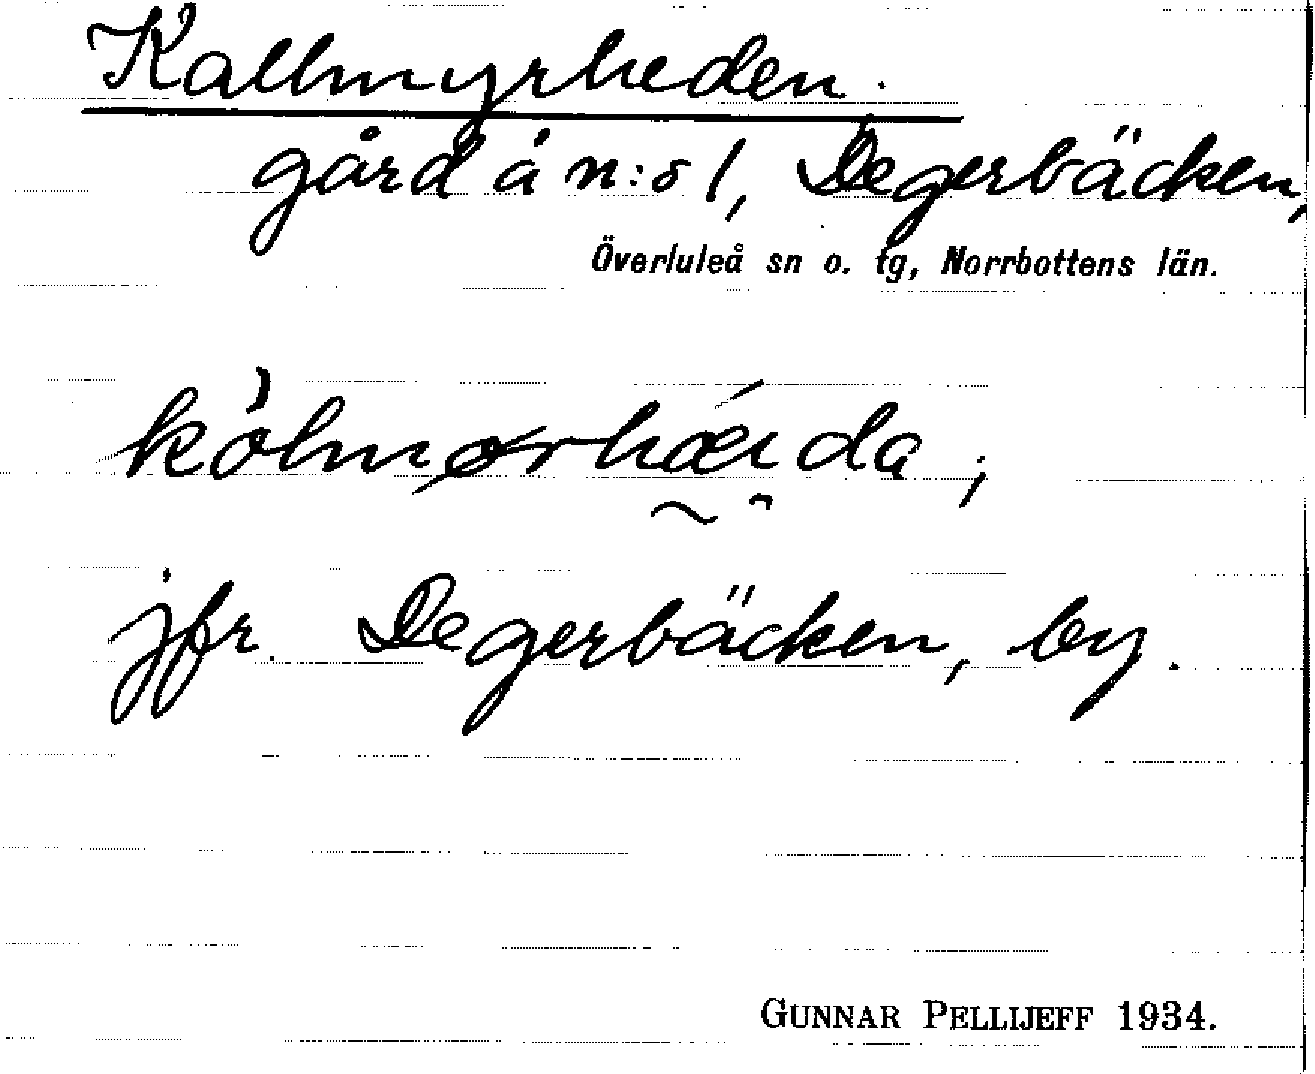 Kallmyrheden.
gård å n:o 1, Degerbäcken,
Överluleå sn o. tg, Norrbottens län.
kòlmørhǽịda;
jfr. Degerbäcken, by.
GUNNAR PELLIJEFF 1934.